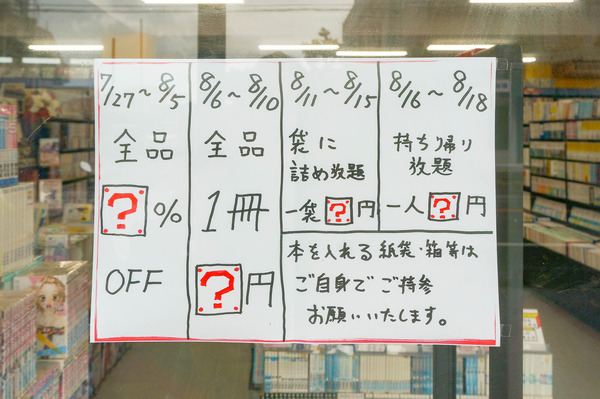 7/27～8/5
全品
?%
OFF
8/6～8/10
全品
1冊
?円
8/11～8/15
袋に
詰め放題
一袋?円
8/16～8/18
持ち帰り
放題
一人?円
本を入れる紙袋・箱等は
ご自身でご持参
お願いいたします。